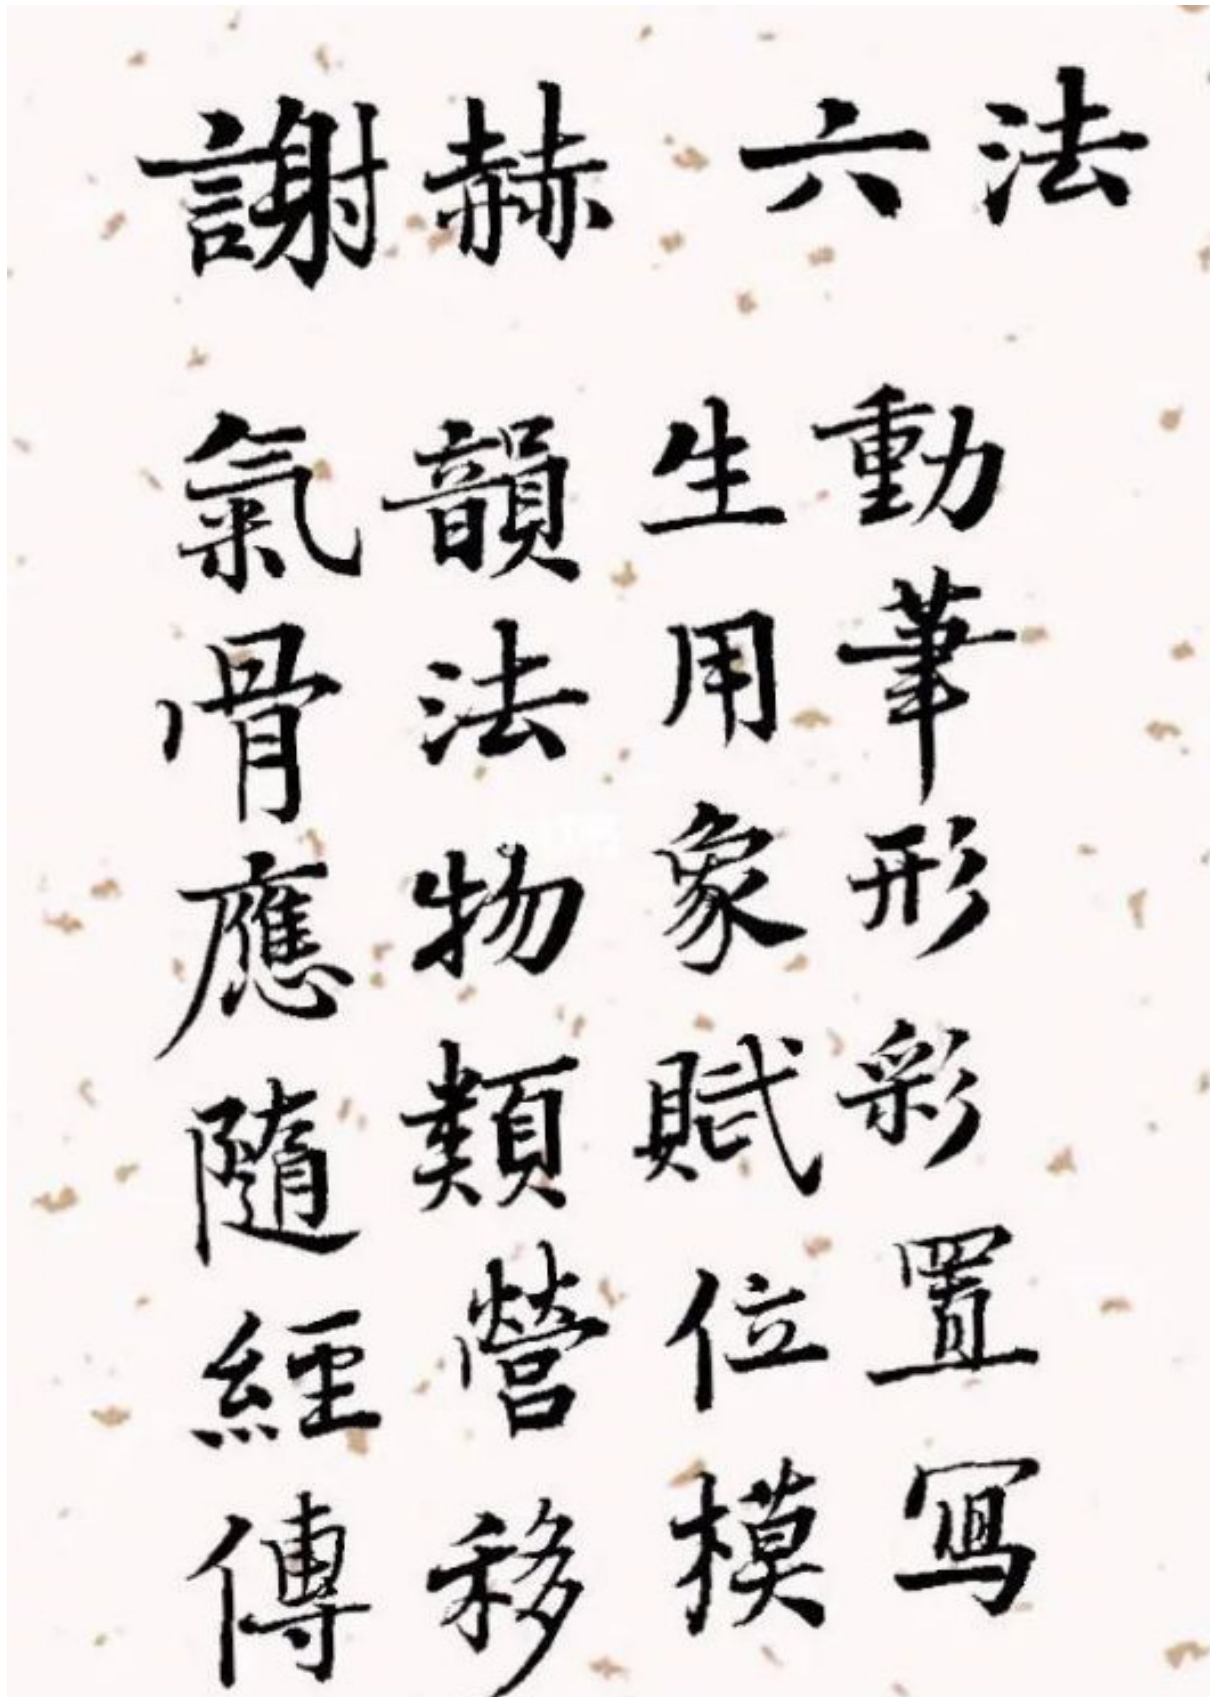 謝赫 六法
氣韻生動
骨法用筆
應物象形
隨類賦彩
經營位置
傳移模寫